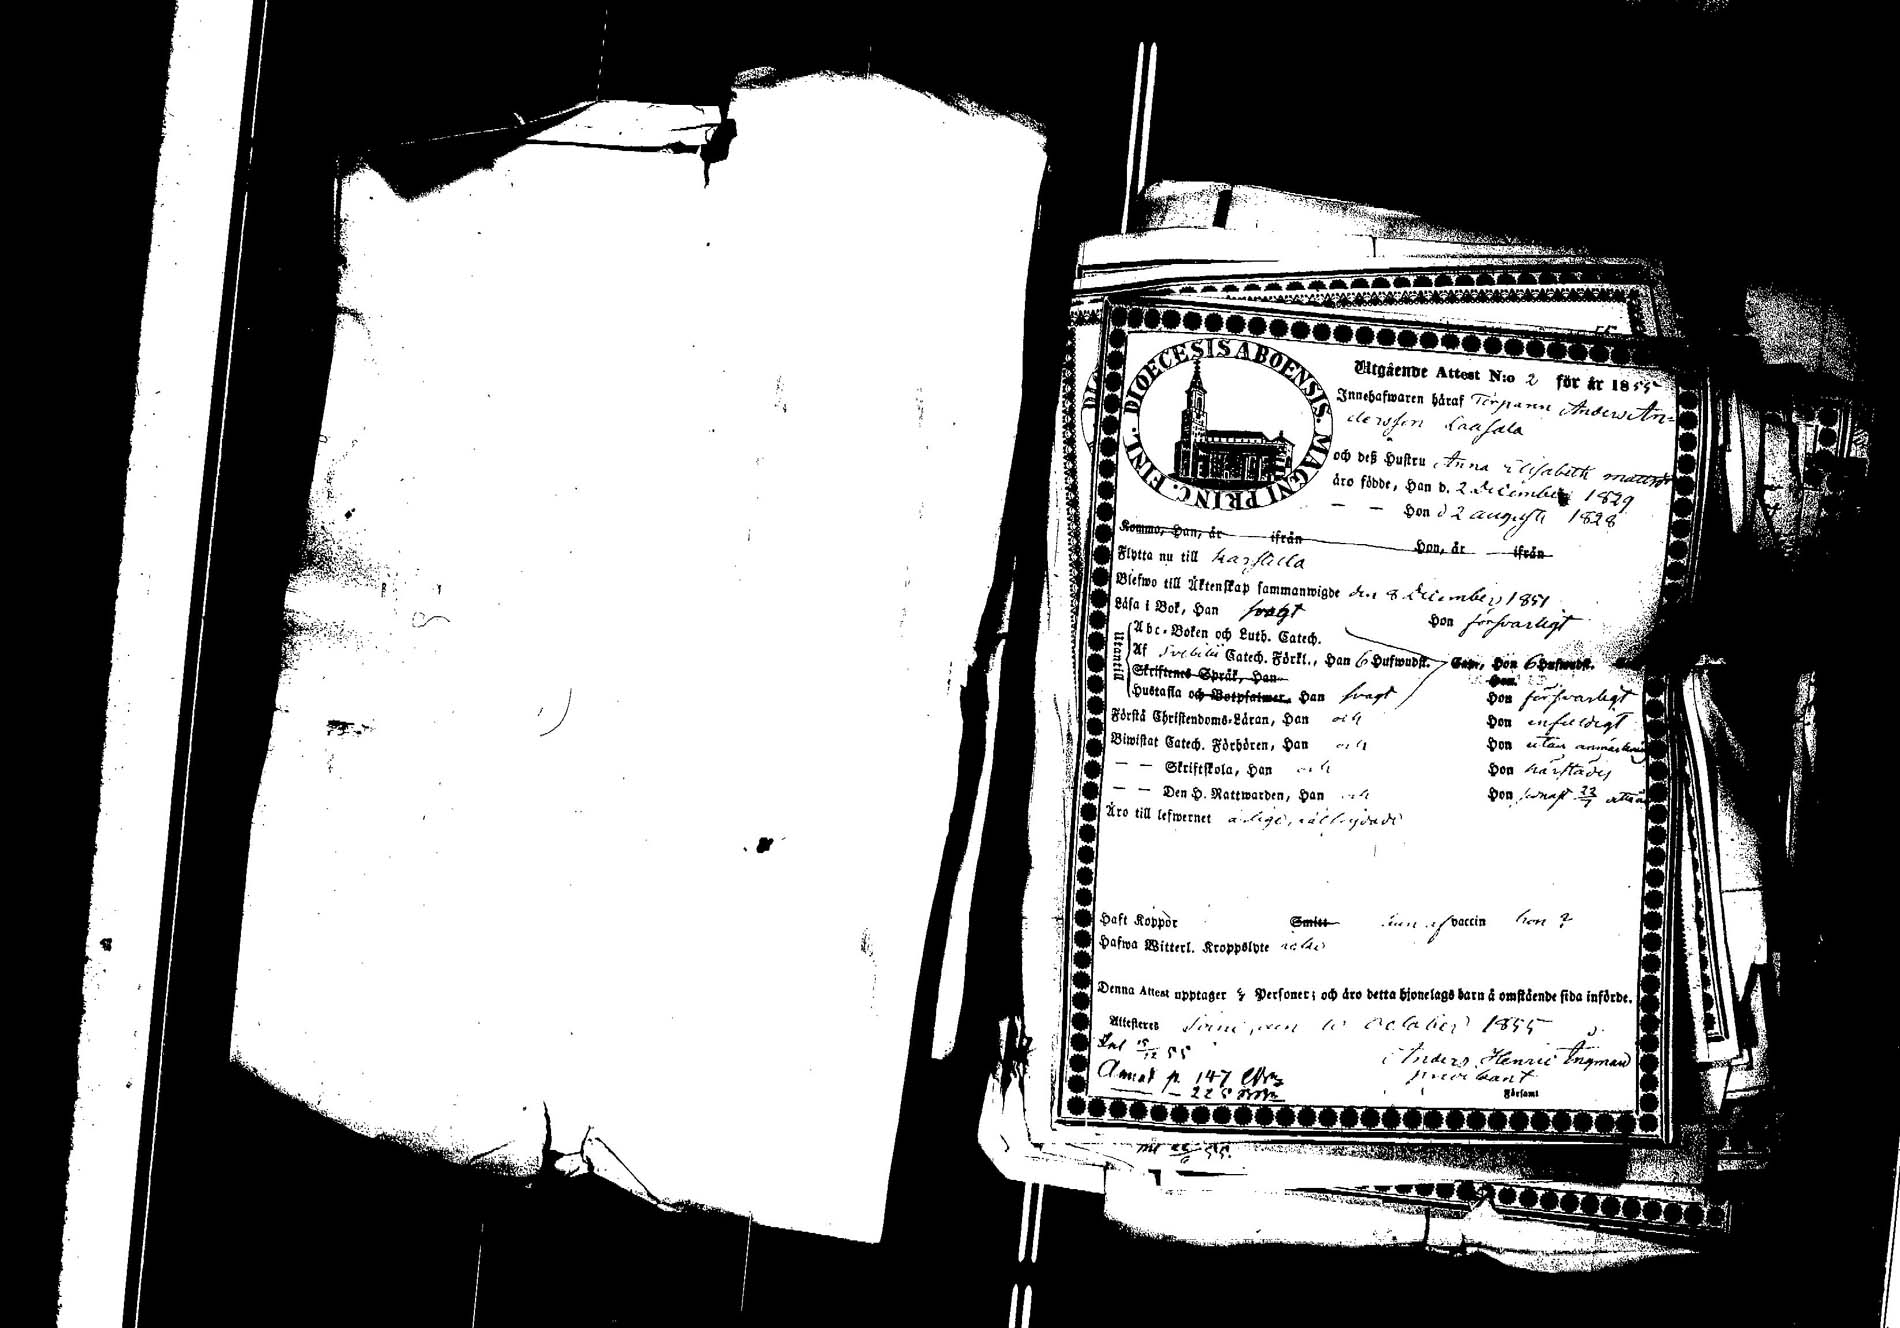 DIOECESIS ABOENSIS. MAGNI PRINC. FINL.
Utgående Attest N:o 2 för år 1855
Innehafwaren häraf Torparen Anders An-
dersson Laasala
och deß Hustru Anna Elisabeth Mattsdr
äro födde, Han d. 2 December 1829
— — Hon d 2 Augusti 1828
Kommo, Han, år ifrån Hon, år ifrån
Flytta nu till Karstula
Blefwo till Äktenskap sammanwigde den 8 December 1851
Läsa i Bok, Han svagt Hon försvarligt
Utantill
Abc-Boken och Luth. Catech.
Af Svebilii Catech. Förkl., Han 6 Hufwudst. Hon 6 Hufwudst.
Skriftenes Språk, Han Hon
Hustafla och Botpsalmer, Han svagt Hon försvarligt
Förstå Christendoms-Läran, Han och Hon enfaldigt
Biwistat Catech. Förhören, Han och Hon utan anmärkning
— — Skriftskola, Han och Hon härstädes
— — Den H. Nattwarden, Han och Hon senast 22/7
Äro till lefwernet ärlige, välfrejdade
Haft Koppor Smitt han af vaccin hon ?
Hafwa Witterl. Kroppslyte
Denna Attest upptager Personer; och äro detta hjonelags barn å omstående sida införde.
Attesteras October 1855
Inl 15/12 55
Anders Henric Ingman
p. 147
228
Församl
22/6 55.